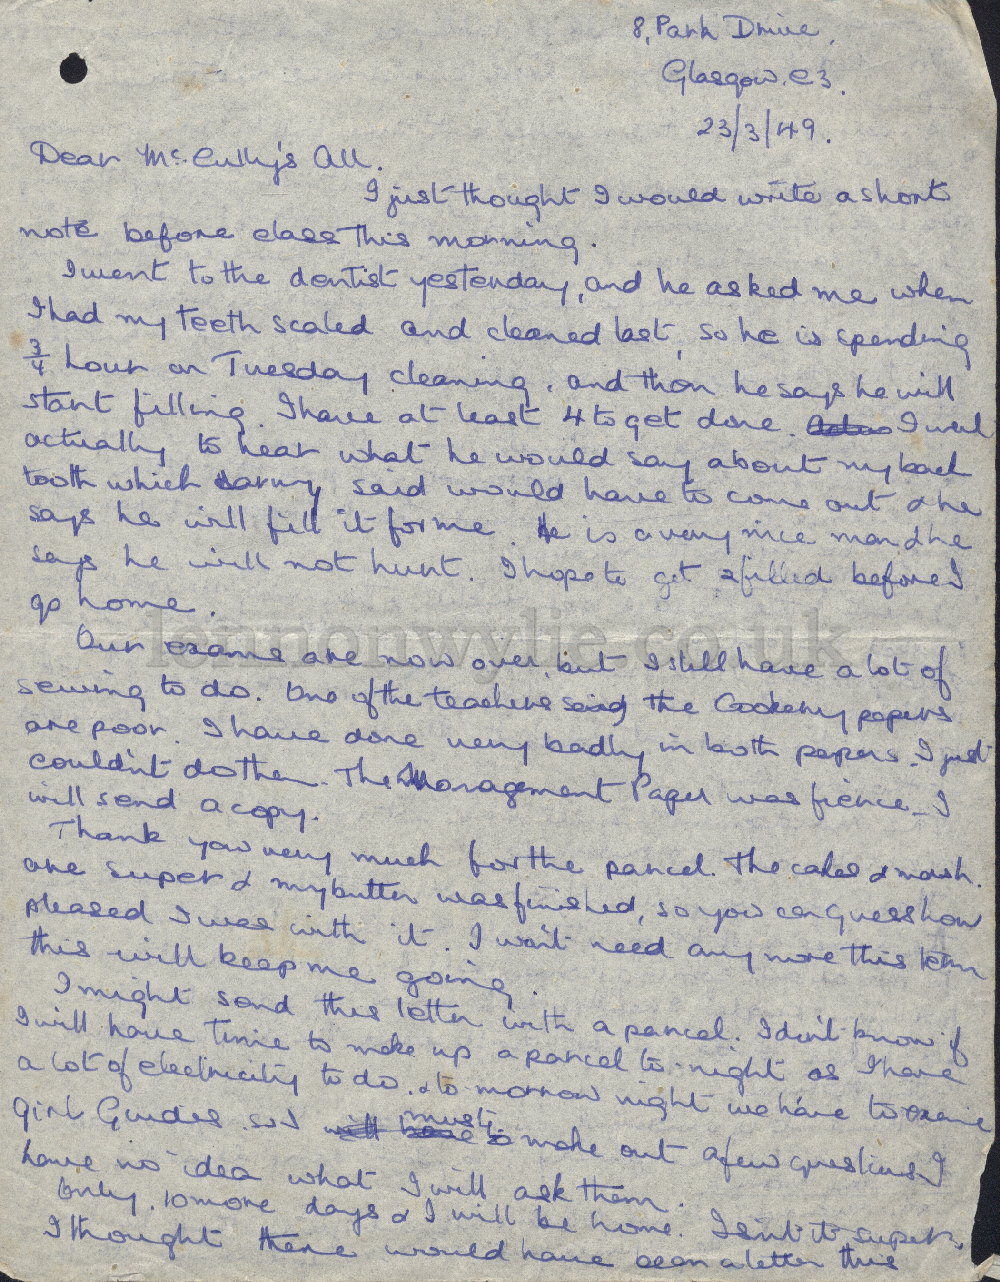 8, Park Drive,
Glasgow. C3.
23/3/49.
Dear McCully's All.
I just thought I would write a short
note before class this morning.
I went to the dentist yesterday, and he asked me when
I had my teeth scaled and cleaned last, so he is spending
3/4 hour on Tuesday cleaning, and then he says he will
start filling. I have at least 4 to get done. I
actually to hear what he would say about my back
tooth which said would have to come out & he
says he will fill it for me. He is a very nice man & he
says he will not hurt. I hope to get 2 filled before I
go home.
lennonwylie.co.uk
Our exams are now over, but I still have a lot of
sewing to do. One of the teachers said the Cookery papers
are poor. I have done very badly in both papers. I just
couldn't do them. The Management Paper was fierce. I
will send a copy.
Thank you very much for the parcel. The cakes & marsh.
are super & my butter was finished, so you can guess how
pleased I was with it. I won't need any more this term
this will keep me going.
I might send this letter with a parcel. I don't know if
I will have time to make up a parcel to-night as I have
a lot of electricity to do. & to-morrow night we have to
Girl Guides so I must make out a few questions I
have no idea what I will ask them.
Only 10 more days & I will be home. Isn't it super.
I thought there would have been a letter this